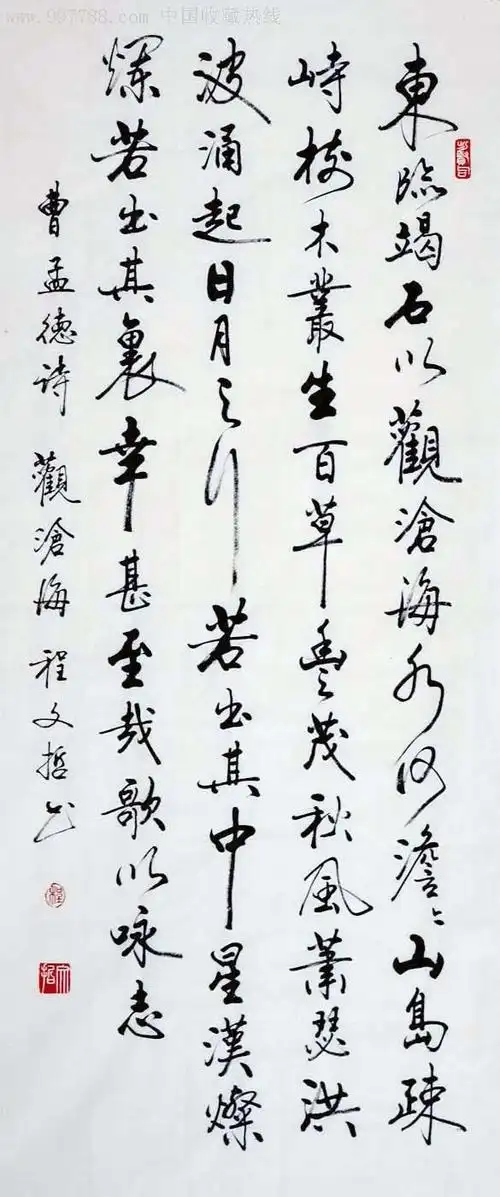 www.997788.com 中国收藏热线
東臨竭石以觀滄海水何澹〻山島疎
峙樹木叢生百草豐茂秋風蕭瑟洪
波涌起日月之行若出其中星漢燦
爛若出其裏幸甚至哉歌以咏志
曹孟德诗 觀滄海 程文哲书
程
文哲